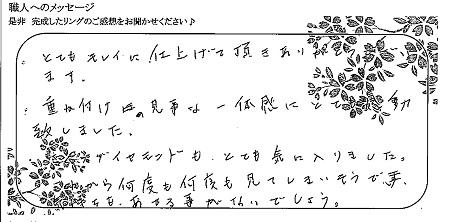 職人へのメッセージ
是非 完成したリングのご感想をお聞かせください♪
とてもキレイに仕上げて頂きあり
ます。
重ね付け時の見事な一体感にとて 動
致しました。
ダイヤモンドも、とても気に入りました。
から何度も何度も見てしまいそうで事、
も、あきる事がないでしょう。